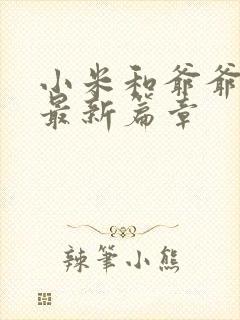 小米和爷爷
最新篇章
辣筆小熊